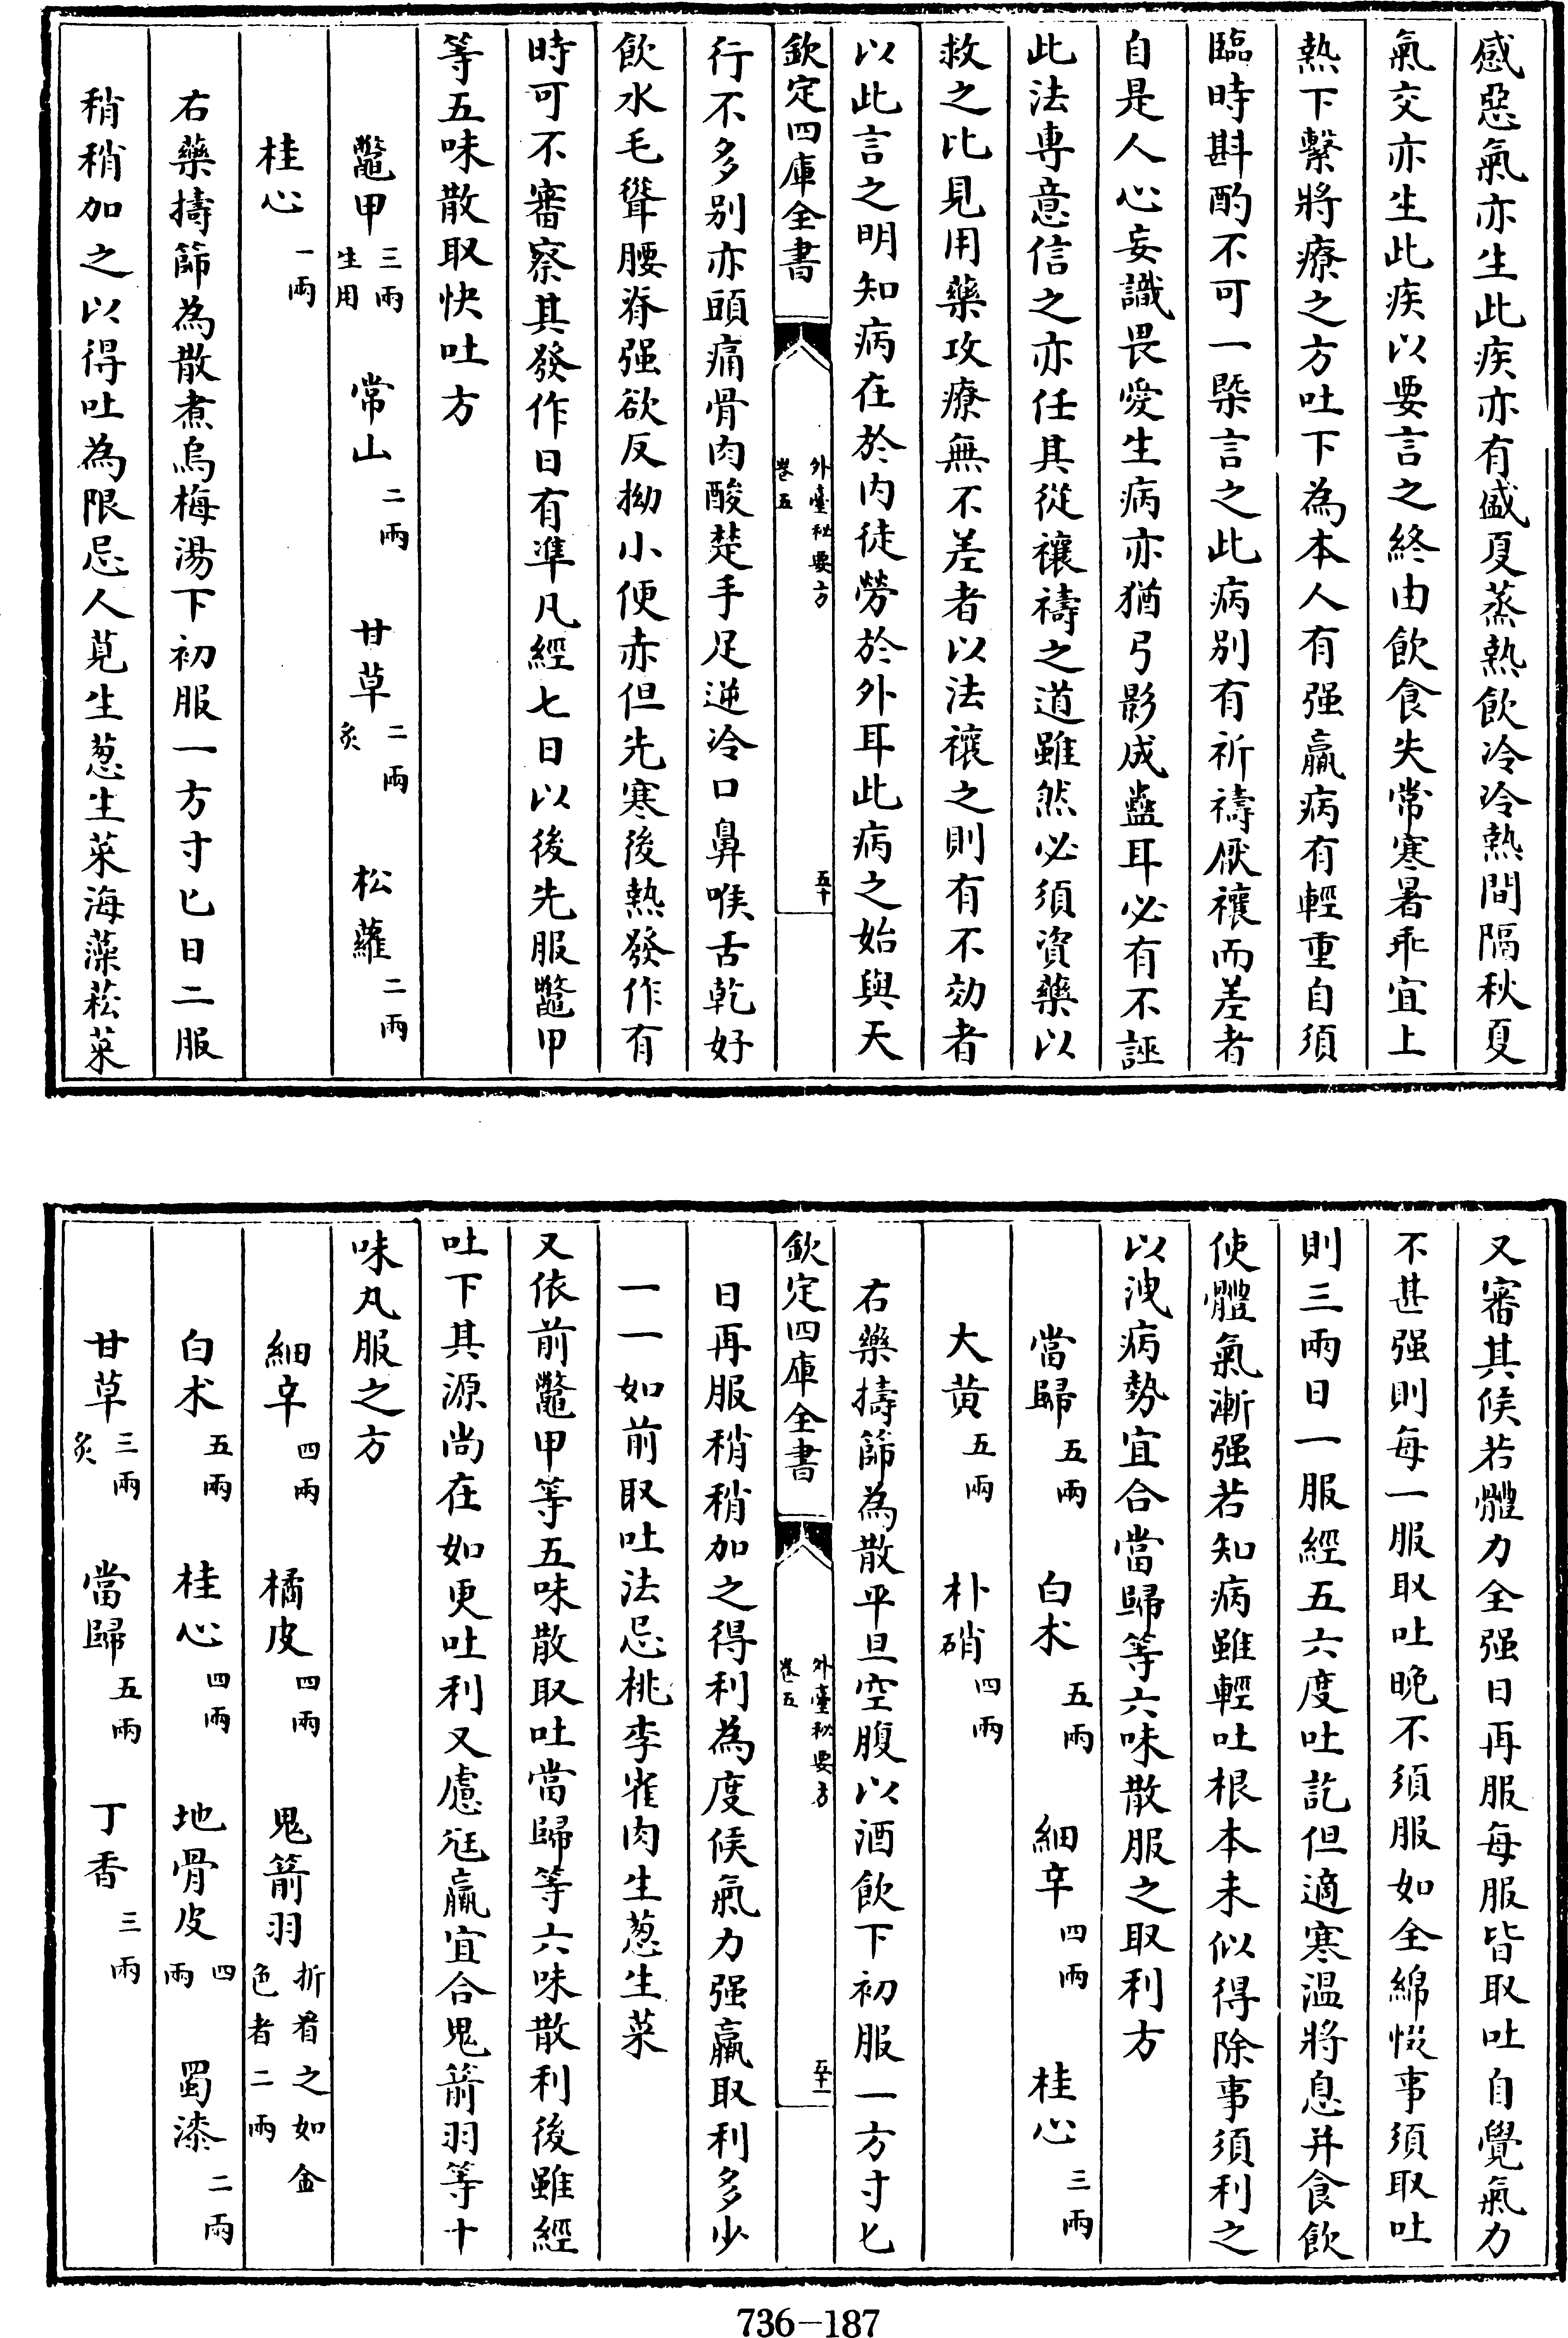 感惡氣亦生此疾亦有盛夏蒸熱飲冷冷熱間隔秋夏
氣交亦生此疾以要言之終由飲食失常寒暑乖宜上
熱下繫將療之方吐下為本人有强羸病有輕重自須
臨時斟酌不可一槩言之此病别有祈禱厭禳而差者
自是人心妄識畏愛生病亦猶弓影成蠱耳必有不誣
此法專意信之亦任其從禳禱之道雖然必須資藥以
救之比見用藥攻療無不差者以法禳之則有不効者
以此言之明知病在於内徒勞於外耳此病之始與天
欽定四庫全書
外臺秘要方
卷五
五十
行不多别亦頭痛骨肉酸楚手足逆冷口鼻喉舌乾好
飲水毛聳腰脊强欲反拗小便赤但先寒後熱發作有
時可不審察其發作日有準凡經七日以後先服鼈甲
等五味散取快吐方
鼈甲三兩生用 常山二兩 甘草二兩炙 松蘿二兩
桂心一兩
右藥擣篩為散煮烏梅湯下初服一方寸匕日二服
稍稍加之以得吐為限忌人莧生葱生菜海藻菘菜
又審其候若體力全强日再服每服皆取吐自覺氣力
不甚强則每一服取吐晚不須服如全綿惙事須取吐
則三兩日一服經五六度吐訖但適寒温將息并食飲
使體氣漸强若知病雖輕吐根本未似得除事須利之
以洩病勢宜合當歸等六味散服之取利方
當歸五兩 白术五兩 細辛四兩 桂心三兩
大黄五兩 朴硝四兩
右藥擣篩為散平旦空腹以酒飲下初服一方寸匕
欽定四庫全書
外臺秘要方
卷五
五十一
日再服稍稍加之得利為度候氣力强羸取利多少
一一如前取吐法忌桃李雀肉生葱生菜
又依前鼈甲等五味散取吐當歸等六味散利後雖經
吐下其源尚在如更吐利又慮尫羸宜合鬼箭羽等十
味丸服之方
細辛四兩 橘皮四兩 鬼箭羽折看之如金色者二兩
白术五兩 桂心四兩 地骨皮四兩 蜀漆二兩
甘草三兩炙 當歸五兩 丁香三兩
736-187